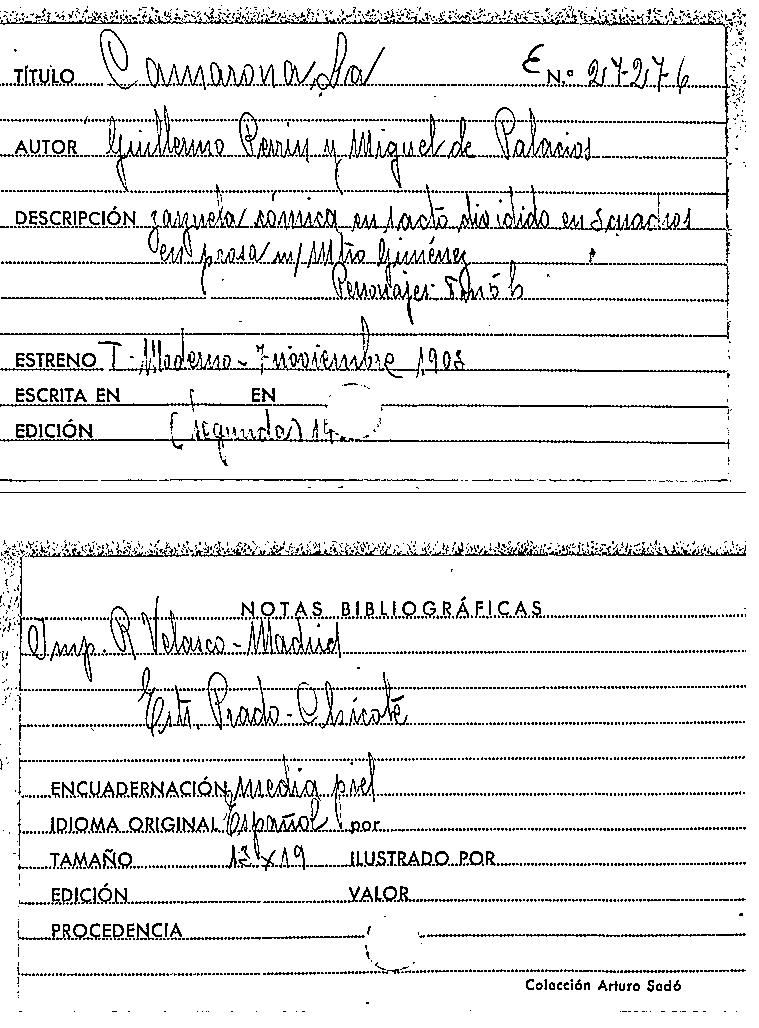 TÍTULO Camarona La E N.º 27-27-6
AUTOR Guillermo Perrín y Miguel de Palacios
DESCRIPCIÓN zarzuela cómica en 1 acto dividido en 5 cuadros
en prosa m/ Mtro Giménez
Personajes
ESTRENO T. Moderno - 7 noviembre 1903
ESCRITA EN EN
EDICIÓN (segunda)
NOTAS BIBLIOGRÁFICAS
Imp. R Velasco - Madrid
Estr. Prado - Chicote
ENCUADERNACIÓN media piel
IDIOMA ORIGINAL Español por
TAMAÑO 13 x 19 ILUSTRADO POR
EDICIÓN VALOR
PROCEDENCIA
Colección Arturo Sedó